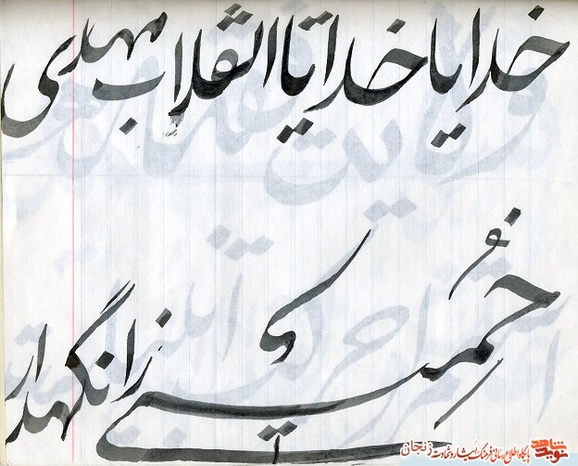 خدایا خدایا تا انقلاب مهدی
خمینی را نگهدار
نوید شاهد
پایگاه اطلاع رسانی فرهنگ ایثار و شهادت زنجان